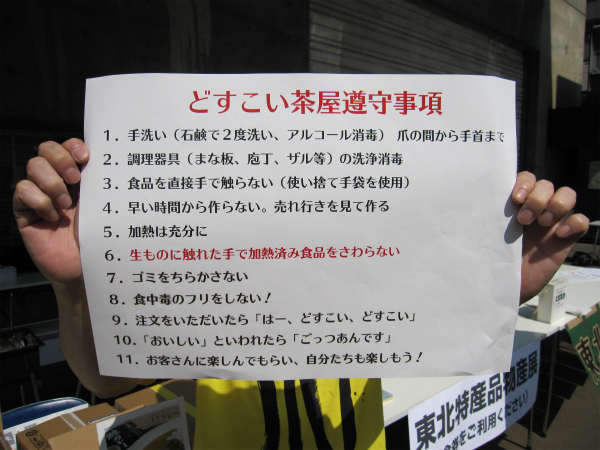 どすこい茶屋遵守事項
1．手洗い（石鹸で２度洗い、アルコール消毒）　爪の間から手首まで
2．調理器具（まな板、庖丁、ザル等）の洗浄消毒
3．食品を直接手で触らない（使い捨て手袋を使用）
4．早い時間から作らない。売れ行きを見て作る
5．加熱は充分に
6．生ものに触れた手で加熱済み食品をさわらない
7．ゴミをちらかさない
8．食中毒のフリをしない！
9．注文をいただいたら「はー、どすこい、どすこい」
10．「おいしい」といわれたら「ごっつあんです」
11．お客さんに楽しんでもらい、自分たちも楽しもう！
東北特産品物産展
をご利用ください）
東北